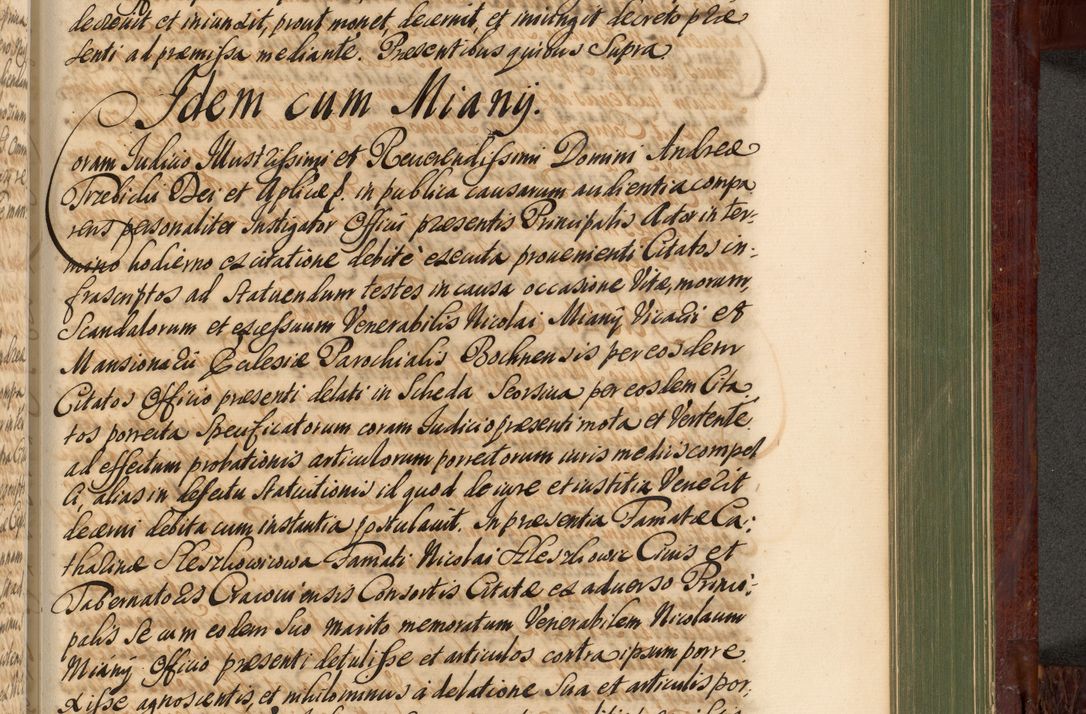 decreuit et iniunxit, prout monet, decernit, et iniungit decreto præ
senti ad præmissa mediante. Præsentibus quibus supra.
Idem cum Mianÿ.
Coram Iudicio Illustrissimi et Reuerendissimi Domini Andreæ
Trzebicki Dei et Aplicæ f. in publica causarum audientia compa
rens personaliter Instigator Officii præsentis Principalis Actor in ter-
mino hodierno ex citatione debitè executa prouenienti Citatos in-
frascriptos ad statuendum testes in causa occasione Vitæ, morum,
Scandalorum et excessuum Venerabilis Nicolai Mianÿ Vicarii et
Mansionarii Ecclesiæ Parochialis Bochnensis per eosdem
Citatos Officio præsenti delati in Scheda Seorsiua per eosdem Cita
tos porrecta Specificatorum coram Iudicio præsenti mota et Vertente
ad effectum probationis articulorum porrectorum iuris mediis compel
li, alias in defectu Statuitionis id quod de iure et iustitia Venerit
decerni debita cum instantia postulauit. In præsentia Famatæ Ca-
tharinæ Famati Nicolai Ciuis et
Tabernatoris Cracouiensis Consortis Citatæ ex aduerso Princi-
palis se cum eodem suo marito memoratum Venerabilem Nicolaum
Mianÿ Officio præsenti detulisse et articulos contra ipsum porre
xisse agnoscentis, et nihilominus à delatione sua et articulis por-